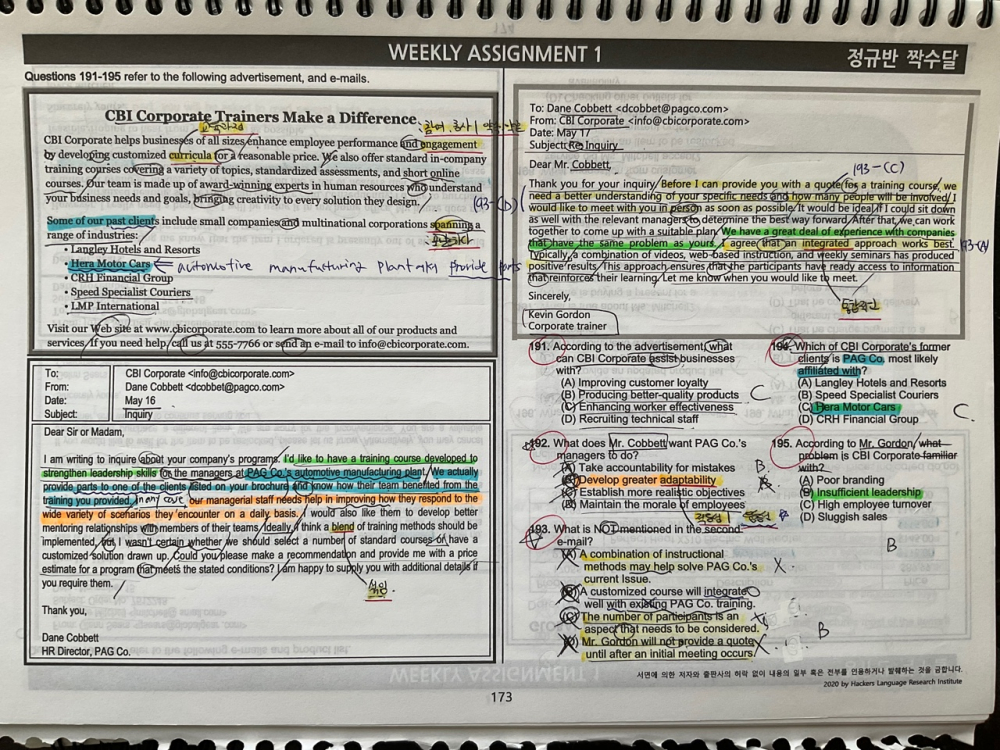 WEEKLY ASSIGNMENT 1
정규반 짝수달
Questions 191-195 refer to the following advertisement, and e-mails.
CBI Corporate Trainers Make a Difference
CBI Corporate helps businesses of all sizes enhance employee performance and engagement
by developing customized curricula for a reasonable price. We also offer standard in-company
training courses covering a variety of topics, standardized assessments, and short online
courses. Our team is made up of award-winning experts in human resources who understand
your business needs and goals, bringing creativity to every solution they design.
(193-D)
Some of our past clients include small companies and multinational corporations spanning a
range of industries:
• Langley Hotels and Resorts
• Hera Motor Cars
automotive manufacturing plant
provide parts
• CRH Financial Group
• Speed Specialist Couriers
• LMP International
Visit our Web site at www.cbicorporate.com to learn more about all of our products and
services. If you need help, call us at 555-7766 or send an e-mail to info@cbicorporate.com.
To: CBI Corporate <info@cbicorporate.com>
From: Dane Cobbett <dcobbet@pagco.com>
Date: May 16
Subject: Inquiry
Dear Sir or Madam,
I am writing to inquire about your company's programs. I'd like to have a training course developed to
strengthen leadership skills for the managers at PAG Co.'s automotive manufacturing plant. We actually
provide parts to one of the clients listed on your brochure and know how their team benefited from the
training you provided. In my case, our managerial staff needs help in improving how they respond to the
wide variety of scenarios they encounter on a daily basis. I would also like them to develop better
mentoring relationships with members of their teams. Ideally, I think a blend of training methods should be
implemented, but I wasn't certain whether we should select a number of standard courses or have a
customized solution drawn up. Could you please make a recommendation and provide me with a price
estimate for a program that meets the stated conditions? I am happy to supply you with additional details if
you require them.
혼합
Thank you,
Dane Cobbett
HR Director, PAG Co.
To: Dane Cobbett <dcobbet@pagco.com>
From: CBI Corporate <info@cbicorporate.com>
Date: May 17
Subject: Re: Inquiry
Dear Mr. Cobbett,
193-(C)
Thank you for your inquiry. Before I can provide you with a quote for a training course, we
need a better understanding of your specific needs and how many people will be involved. I
would like to meet with you in person as soon as possible. It would be ideal if I could sit down
as well with the relevant managers to determine the best way forward. After that, we can work
together to come up with a suitable plan. We have a great deal of experience with companies
that have the same problem as yours. I agree that an integrated approach works best.
193-(A)
Typically, a combination of videos, web-based instruction, and weekly seminars has produced
positive results. This approach ensures that the participants have ready access to information
that reinforces their learning. Let me know when you would like to meet.
Sincerely,
Kevin Gordon
Corporate trainer
191. According to the advertisement, what
can CBI Corporate assist businesses
with?
(A) Improving customer loyalty
(B) Producing better-quality products
(C) Enhancing worker effectiveness
(D) Recruiting technical staff
C
192. What does Mr. Cobbett want PAG Co.'s
managers to do?
(A) Take accountability for mistakes
(B) Develop greater adaptability
(C) Establish more realistic objectives
(D) Maintain the morale of employees
B
193. What is NOT mentioned in the second
e-mail?
(A) A combination of instructional
methods may help solve PAG Co.'s
current Issue.
(B) A customized course will integrate
well with existing PAG Co. training.
(C) The number of participants is an
aspect that needs to be considered.
(D) Mr. Gordon will not provide a quote
until after an initial meeting occurs.
B
194. Which of CBI Corporate's former
clients is PAG Co. most likely
affiliated with?
(A) Langley Hotels and Resorts
(B) Speed Specialist Couriers
(C) Hera Motor Cars
(D) CRH Financial Group
C.
195. According to Mr. Gordon, what
problem is CBI Corporate familiar
with?
(A) Poor branding
(B) Insufficient leadership
(C) High employee turnover
(D) Sluggish sales
B
서면에 의한 저자와 출판사의 허락 없이 내용의 일부 혹은 전부를 인용하거나 발췌하는 것을 금합니다.
2020 by Hackers Language Research Institute
173